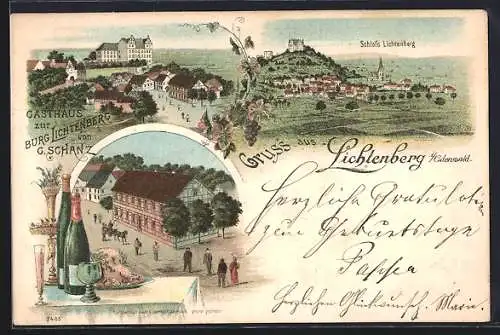 Schloß Lichtenberg
GASTHAUS
zur
BURG LICHTENBERG
von
G. SCHANZ
Gruss aus Lichtenberg i/Odenwald.
Herzliche Gratulation
zum Geburtstage
Herzlichen Glückwunsch. Marie